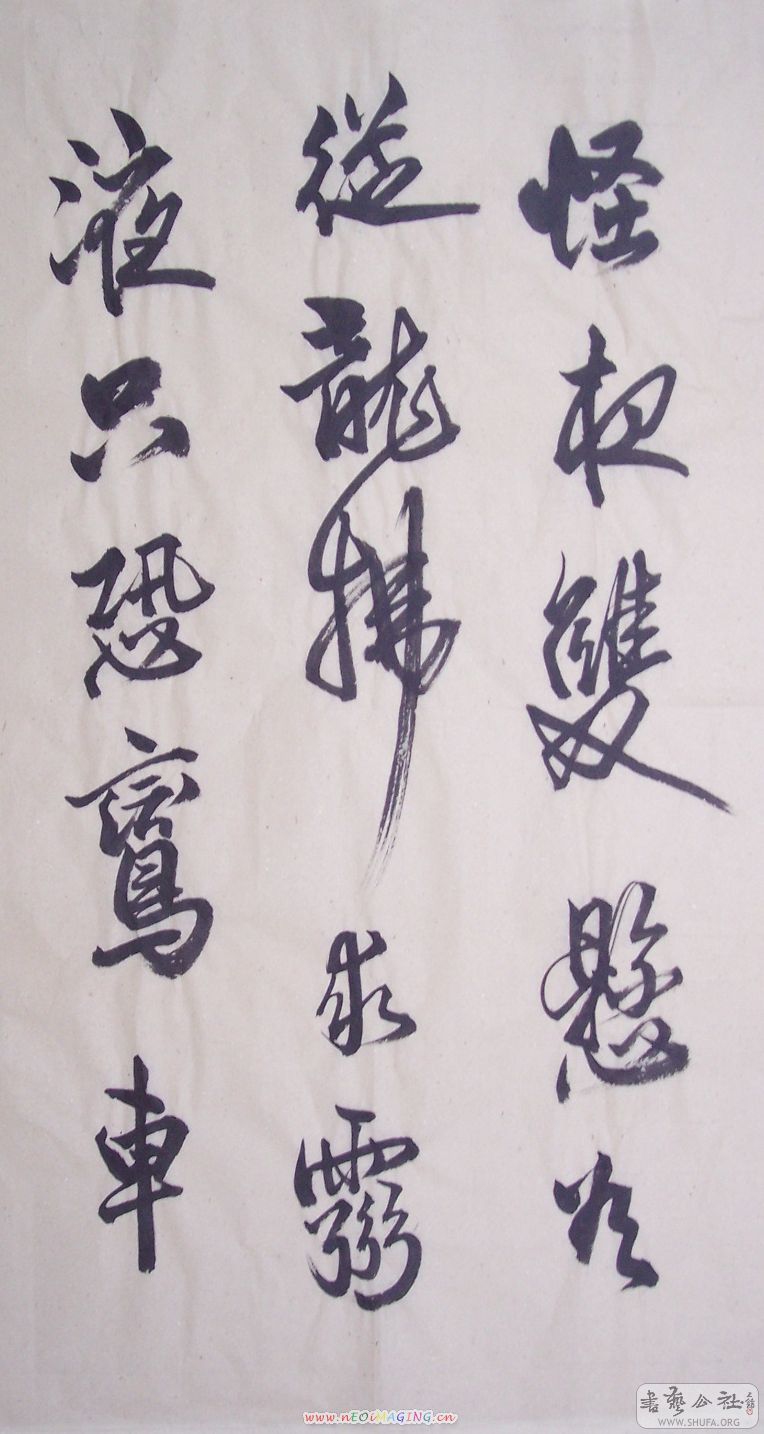 怪雙懸
從龍拂求
液只恐鸞車
www.nEOiMAGING.cn
書藝公社
WWW.SHUFA.ORG